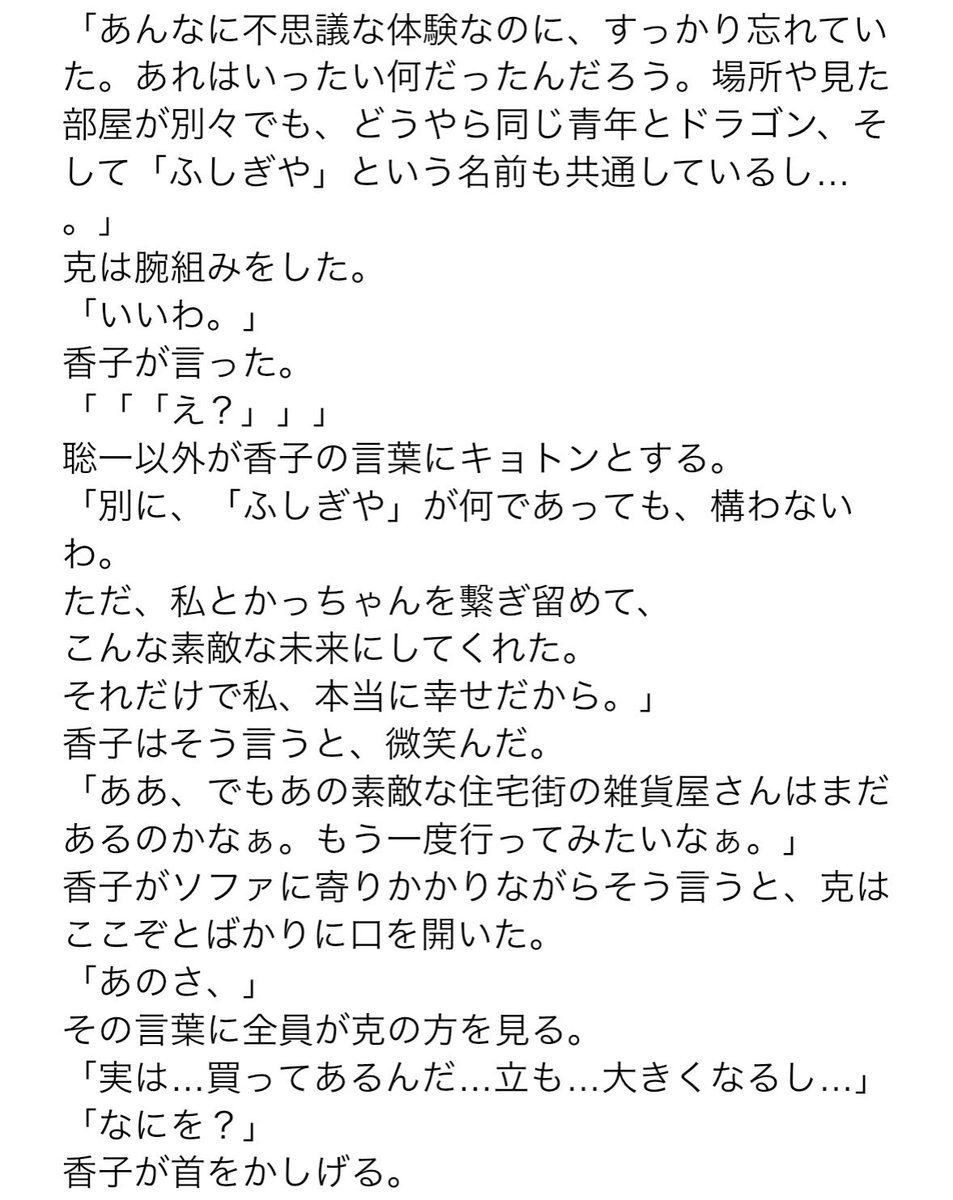 「あんなに不思議な体験なのに、すっかり忘れてい
た。あれはいったい何だったんだろう。場所や見た
部屋が別々でも、どうやら同じ青年とドラゴン、そ
して「ふしぎや」という名前も共通しているし…
。」
克は腕組みをした。
「いいわ。」
香子が言った。
「「「え？」」」
聡一以外が香子の言葉にキョトンとする。
「別に、「ふしぎや」が何であっても、構わない
わ。
ただ、私とかっちゃんを繋ぎ留めて、
こんな素敵な未来にしてくれた。
それだけで私、本当に幸せだから。」
香子はそう言うと、微笑んだ。
「ああ、でもあの素敵な住宅街の雑貨屋さんはまだ
あるのかなぁ。もう一度行ってみたいなぁ。」
香子がソファに寄りかかりながらそう言うと、克は
ここぞとばかりに口を開いた。
「あのさ、」
その言葉に全員が克の方を見る。
「実は…買ってあるんだ…立も…大きくなるし…」
「なにを？」
香子が首をかしげる。